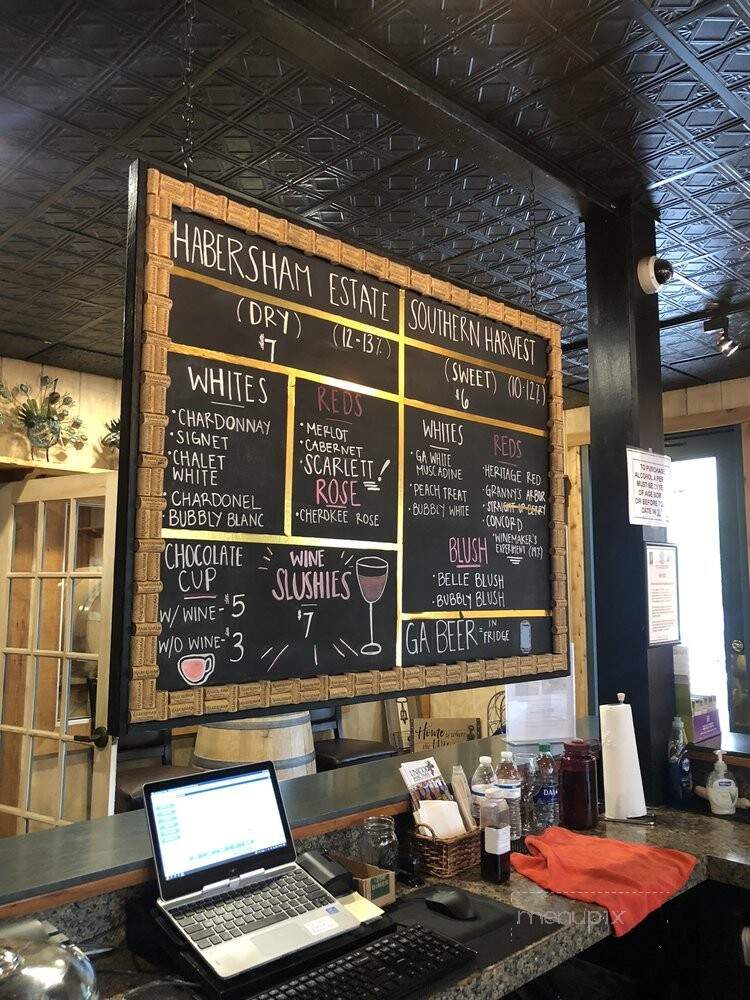 HABERSHAM ESTATE
(DRY) (12-13%)
$7
WHITES
• CHARDONNAY
• SIGNET
• CHALET
WHITE
• CHARDONEL
• BUBBLY BLANC
REDS
• MERLOT
• CABERNET
• SCARLETT!
ROSE
• CHEROKEE ROSE
CHOCOLATE
CUP
W/ WINE - $5
W/O WINE - $3
WINE
SLUSHIES
$7
SOUTHERN HARVEST
(SWEET) (10-12%)
$6
WHITES
• GA WHITE
MUSCADINE
• PEACH TREAT
• BUBBLY WHITE
REDS
• HERITAGE RED
• GRANNY'S ARBOR
• STRAIGHT UP BERRY
• CONCORD
• WINEMAKER'S
EXPERIMENT (19%)
BLUSH
• BELLE BLUSH
• BUBBLY BLUSH
GA BEER = IN
FRIDGE
TO PURCHASE
ALCOHOL A PER
MUST BE
OF AGE
OR BEFORE
DATE IN
Home is where
menupix